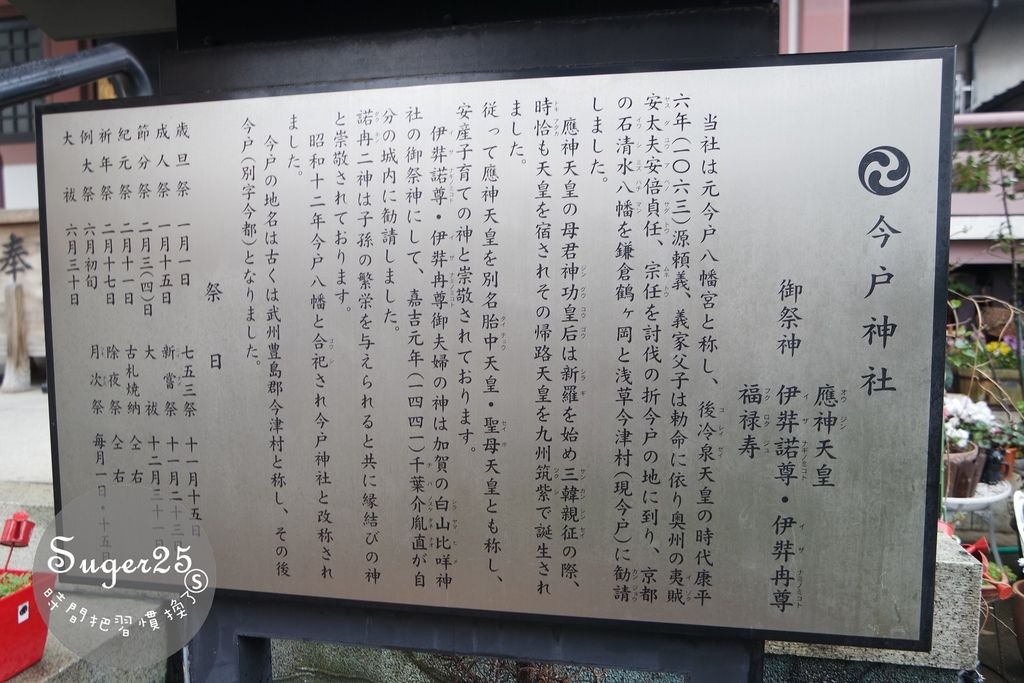 今戸神社
御祭神
應神天皇
伊弉諾尊・伊弉冉尊
福禄寿
当社は元今戸八幡宮と称し、後冷泉天皇の時代康平
六年(一〇六三)源頼義、義家父子は勅命に依り奥州の夷賊
安太夫安倍貞任、宗任を討伐の折今戸の地に到り、京都
の石清水八幡を鎌倉鶴ヶ岡と浅草今津村(現今戸)に勧請
しました。
應神天皇の母君神功皇后は新羅を始め三韓親征の際、
時恰も天皇を宿されその帰路天皇を九州筑紫で誕生され
ました。
従って應神天皇を別名胎中天皇・聖母天皇とも称し、
安産子育ての神と崇敬されております。
伊弉諾尊・伊弉冉尊御夫婦の神は加賀の白山比咩神
社の御祭神にして、嘉吉元年(一四四一)千葉介胤直が自
分の城内に勧請しました。
諾冉二神は子孫の繁栄を与えられると共に縁結びの神
と崇敬されております。
昭和十二年今戸八幡と合祀され今戸神社と改称され
ました。
今戸の地名は古くは武州豊島郡今津村と称し、その後
今戸(別字今都)となりました。
祭日
歳旦祭 一月一日
成人祭 一月十五日
節分祭 二月三(四)日
紀元祭 二月十一日
祈年祭 二月十七日
例大祭 六月初旬
大祓 六月三十日
七五三祭 十一月十五日
新嘗祭 十一月二十三日
大祓 十二月三十一日
古札焼納 仝右
除夜祭 仝右
月次祭 毎月一日・十五日
奉
Suger25
時間把習慣換了S